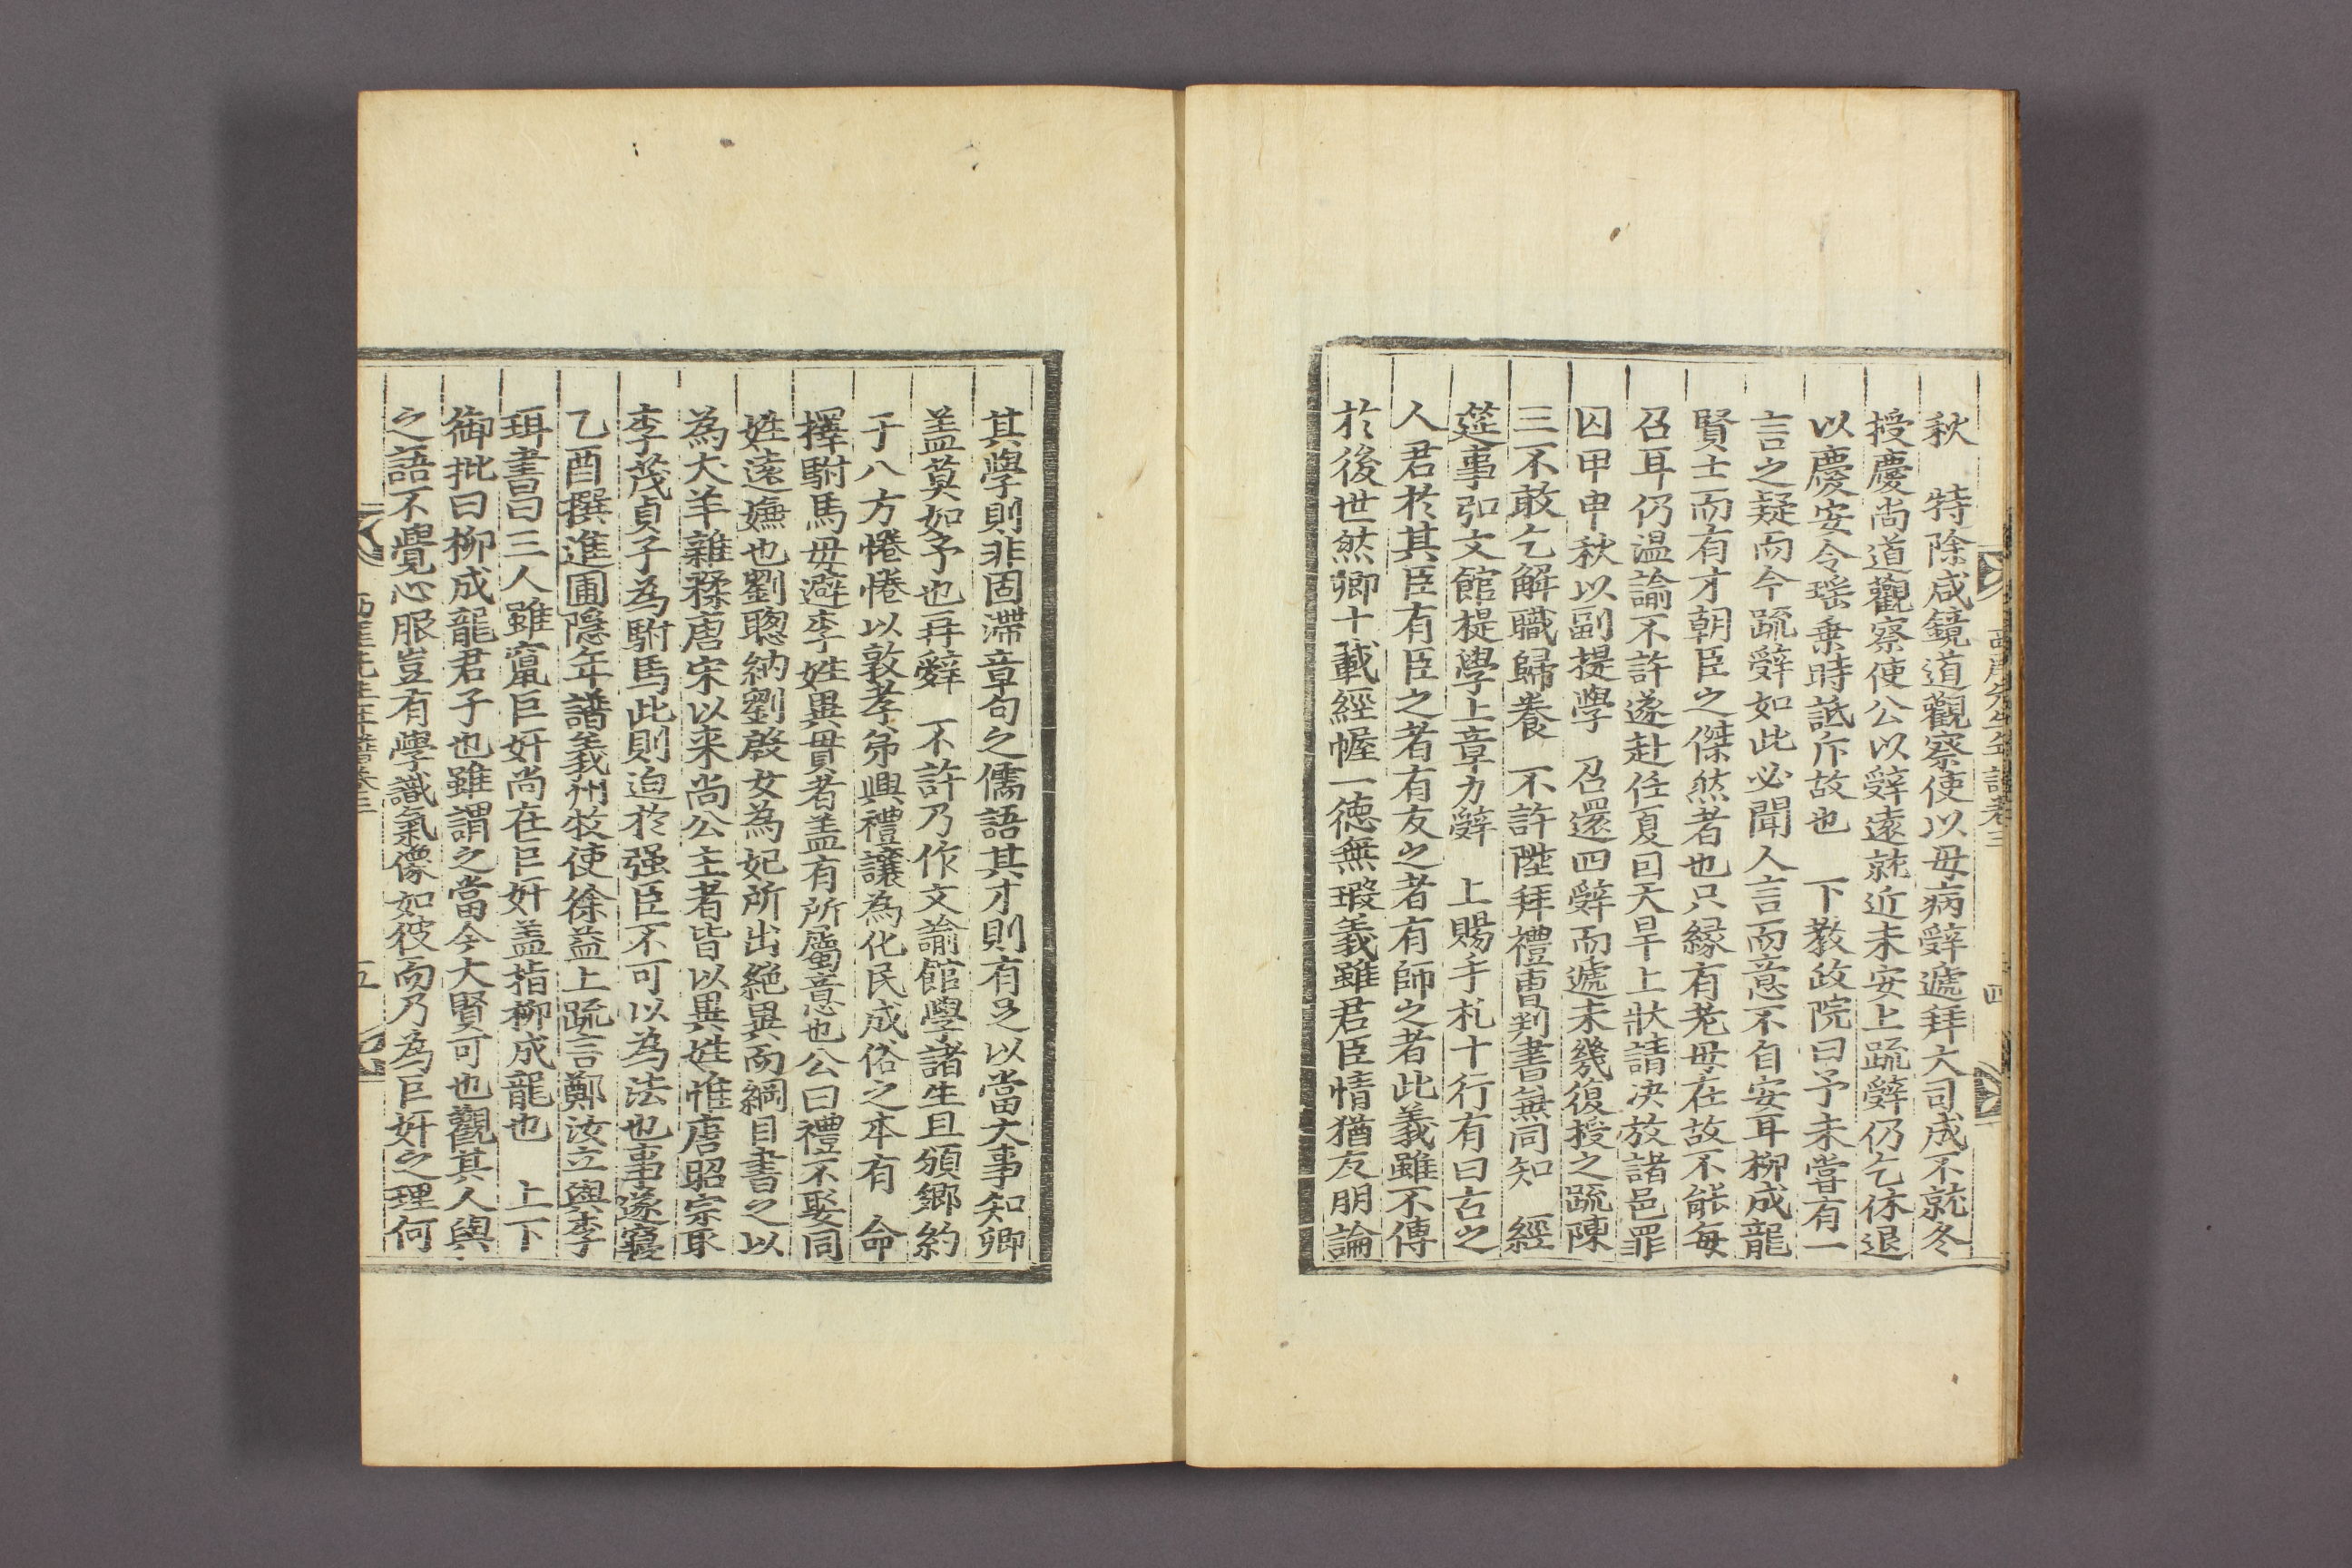 西厓先生年譜卷三
四
秋　特除咸鏡道觀察使以毋病辭遞拜大司成不就冬
授慶尚道觀察使公以辭遠就近未安上疏辭仍乞休退
以慶安令瑶乗時詆斥故也　下教政院曰予未嘗有一
言之疑而今疏辭如此必聞人言而意不自安耳柳成龍
賢士而有才朝臣之傑然者也只緣有老毋在故不能每
召耳仍温諭不許遂赴任夏因天旱上狀請决放諸邑罪
囚甲申秋以副提學　召還四辭而遞未幾復授之疏陳
三不敢乞解職歸養　不許陞拜禮曹判書無同知　經
筵事弘文館提學上章力辭　上賜手札十行有曰古之
人君於其臣有臣之者有友之者有師之者此義雖不傳
於後世然卿十載經幄一徳無瑕義雖君臣情猶友朋論
其學則非固滯章句之儒語其才則有足以當大事知卿
盖莫如予也再辭　不許乃作文諭館學諸生且頒鄉約
于八方惓惓以敦孝弟興禮讓為化民成俗之本有　命
擇駙馬毋避李姓異貫者盖有所屬意也公曰禮不娶同
姓遠嫌也劉聦納劉殷女為妃所出絶異而綱目書之以
為犬羊雜糅唐宋以来尚公主者皆以異姓惟唐昭宗取
李茂貞子為駙馬此則迫於强臣不可以為法也事遂寢
乙酉撰進圃隠年譜義州牧使徐益上疏言鄭汝立與李
珥書曰三人雖竄巨奸尚在巨奸盖指柳成龍也　上下
御批曰柳成龍君子也雖謂之當今大賢可也觀其人與
之語不覺心服豈有學識氣像如彼而乃為巨奸之理何
西厓先生年譜卷三
五